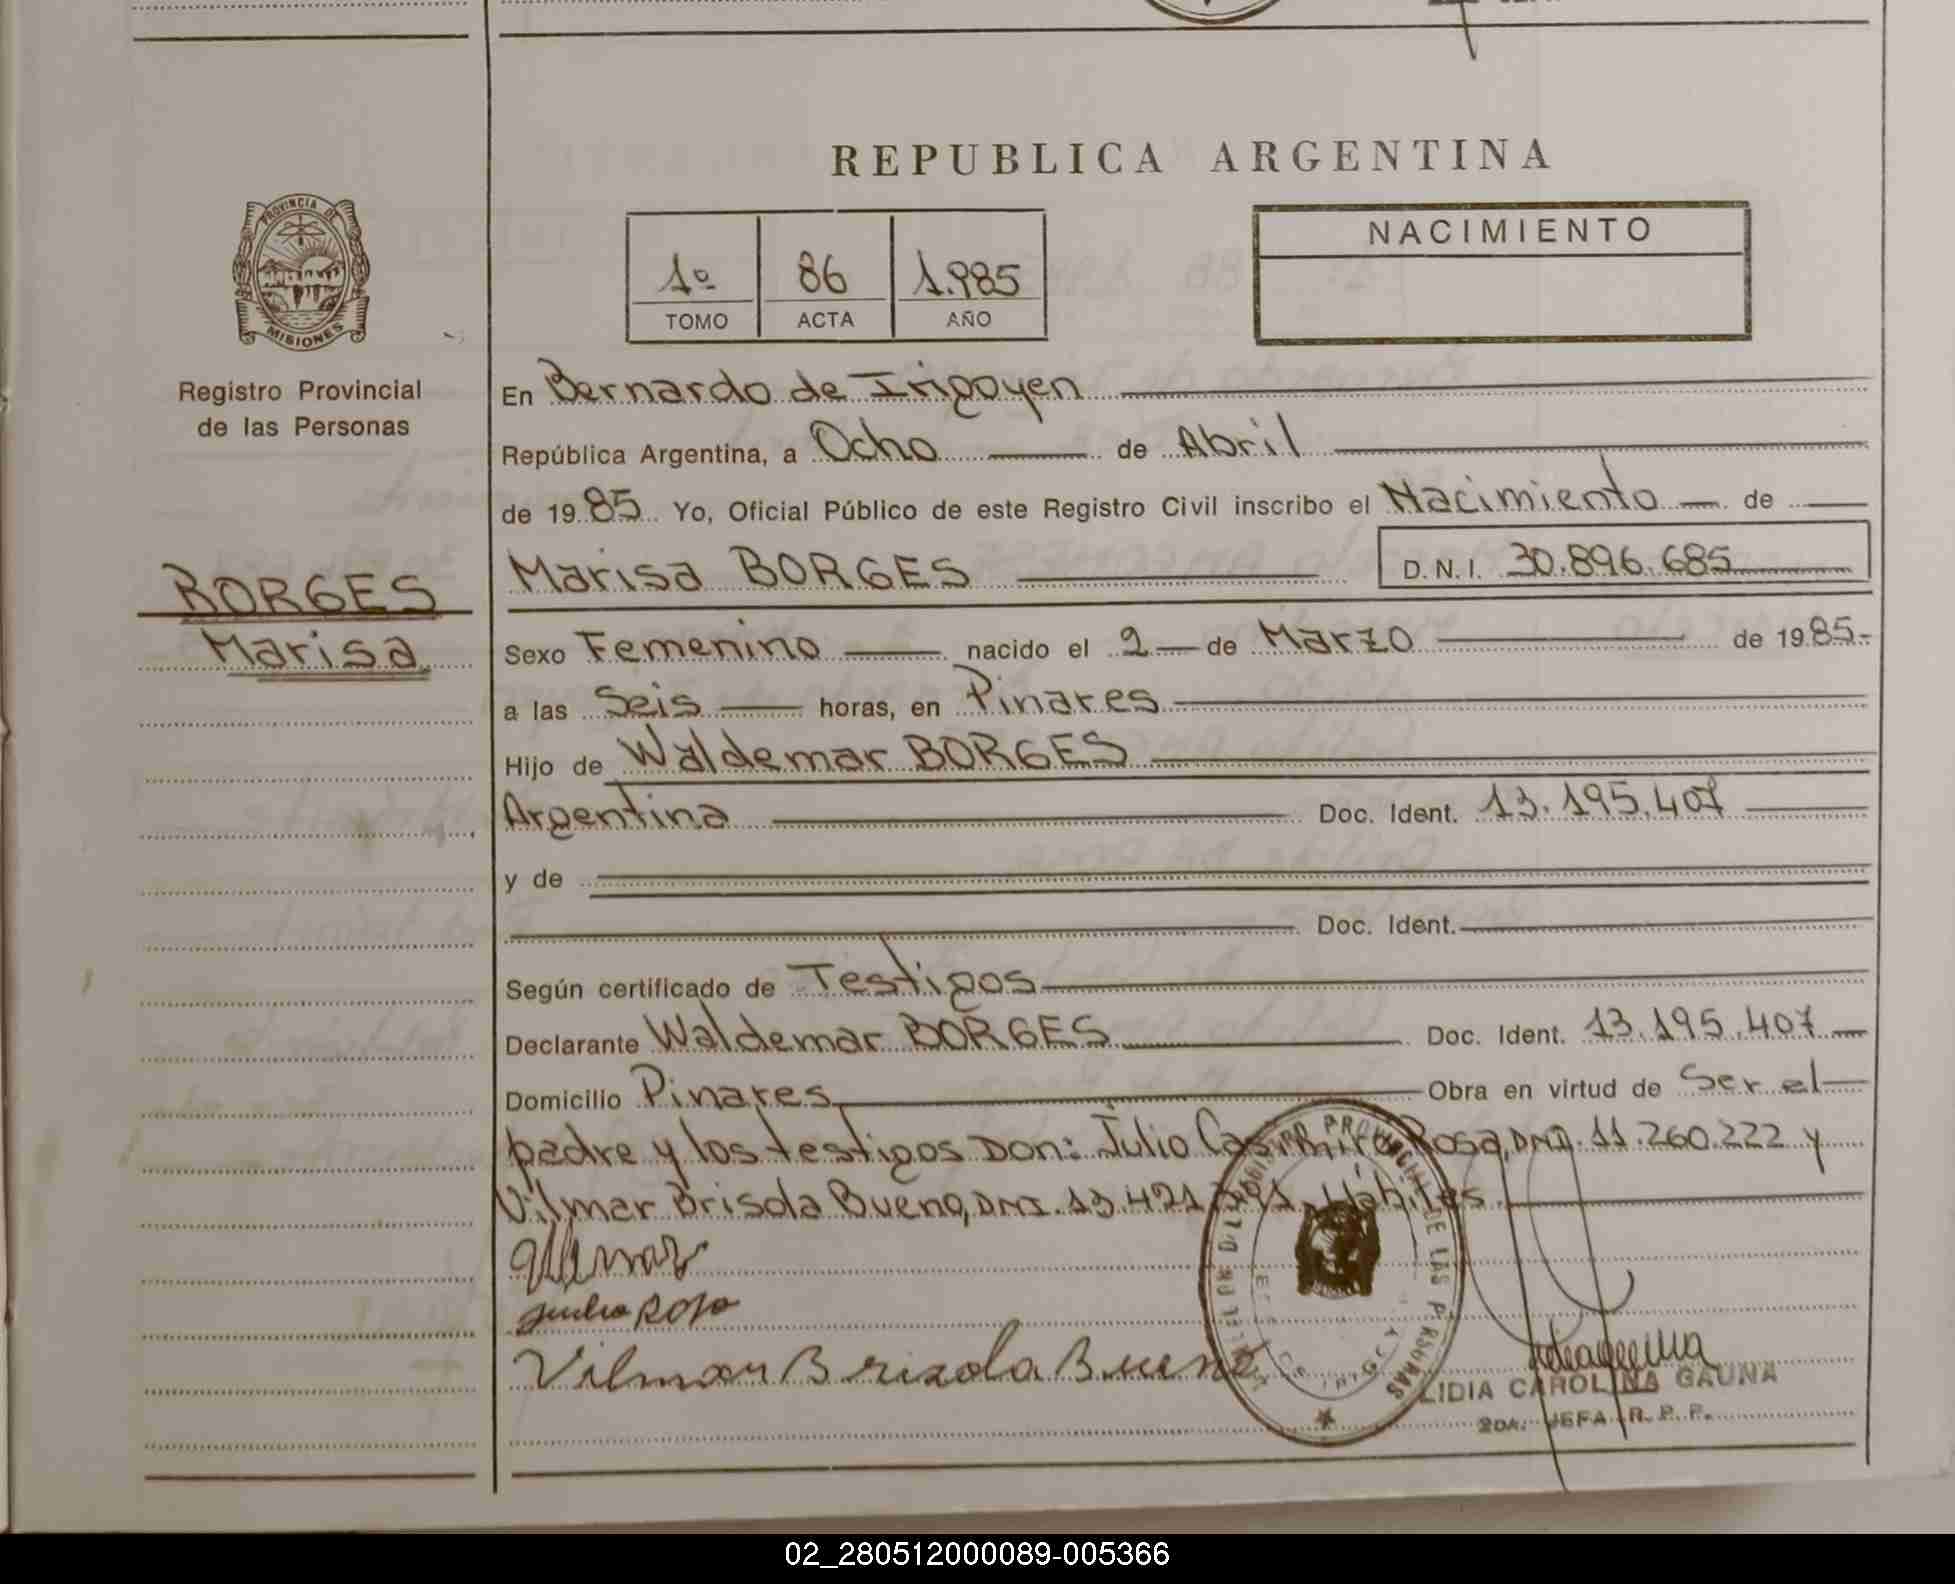 REPUBLICA ARGENTINA
PROVINCIA DE
MISIONES
Registro Provincial
de las Personas
BORGES
Marisa
1º 86 1.985
TOMO ACTA AÑO
NACIMIENTO
En Bernardo de Irigoyen
República Argentina, a Ocho de Abril
de 1985 Yo, Oficial Público de este Registro Civil inscribo el Nacimiento de
Marisa BORGES D.N.I. 30.896.685
Sexo Femenino nacido el 2 de Marzo de 1985.-
a las Seis horas, en Pinares
Hijo de Waldemar BORGES
Argentina Doc. Ident. 13.195.407
y de
Doc. Ident.
Según certificado de Testigos
Declarante Waldemar BORGES Doc. Ident. 13.195.407
Domicilio Pinares Obra en virtud de Ser el
padre y los testigos Don: Julio Casimiro Rosa, DNI. 11.260.222 y
Vilmar Brisola Bueno, DNI. 13.421 Hábiles
Julio Rosa
Vilmar Brizola Bueno
PROVINCIAL DE LAS PERSONAS
LIDIA CAROLINA GAUNA
2DA. JEFA R. P. P.
02_280512000089-005366